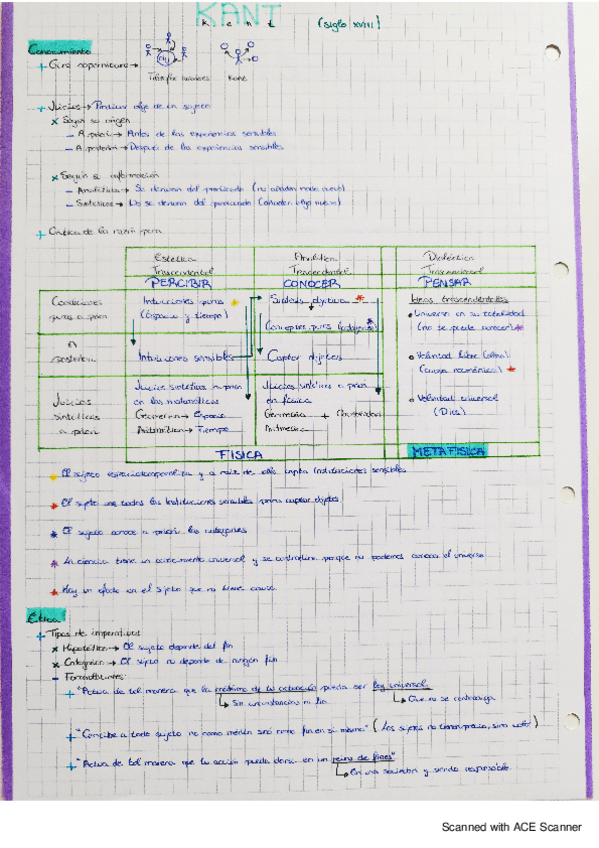 KANT
Kant (siglo XVIII)
Conocimiento
+ Giro copernicano →
Kant
+ Juicios → Predicar algo de un sujeto
x Según su origen
- A priori → Antes de las experiencias sensibles
- A posteriori → Después de las experiencias sensibles
x Según su información
- Analíticos → Se derivan del predicado (no añaden nada nuevo)
- Sintéticos → No se derivan del predicado (añaden algo nuevo)
+ Crítica de la razón pura
Estética Trascendental
PERCIBIR
Analítica Trascendental
CONOCER
Dialéctica Trascendental
PENSAR
Condiciones puras a priori
Intuiciones puras
(Espacio y tiempo)
Síntesis objetiva
Conceptos puros (categorías)
Ideas trascendentales
Universo en su totalidad
(no se puede conocer)
Voluntad libre (alma)
(causa nouménica)
Voluntad universal
(Dios)
A posteriori
Intuiciones sensibles
Captar objetos
Juicios sintéticos a priori
Juicios sintéticos a priori
en las matemáticas
Geometría → Espacio
Aritmética → Tiempo
Juicios sintéticos a priori
en física
Geometría +
Aritmética
FÍSICA
METAFÍSICA
El sujeto espaciotemporaliza y a raíz de ello capta intuiciones sensibles
El sujeto une todas las intuiciones sensibles para captar objetos
El sujeto conoce a priori las categorías
La ciencia tiene un conocimiento universal y se contradice porque no podemos conocer el universo
Hay un efecto en el sujeto que no tiene causa
Ética
+ Tipos de imperativos
x Hipotético → El sujeto depende del fin
x Categórico → El sujeto no depende de ningún fin
- Formulaciones:
+ "Actua de tal manera que la máxima de tu actuación pueda ser ley universal
↳ Sin circunstancias ni fin
↳ Que no se contradiga
+ "Concibe a todo sujeto no como medio sino como fin en si mismo" (Los sujetos no tienen precio, sino valor)
+ "Actua de tal manera que tu acción pueda darse en un reino de fines"
↳ En una sociedad y siendo responsable.
Scanned with ACE Scanner